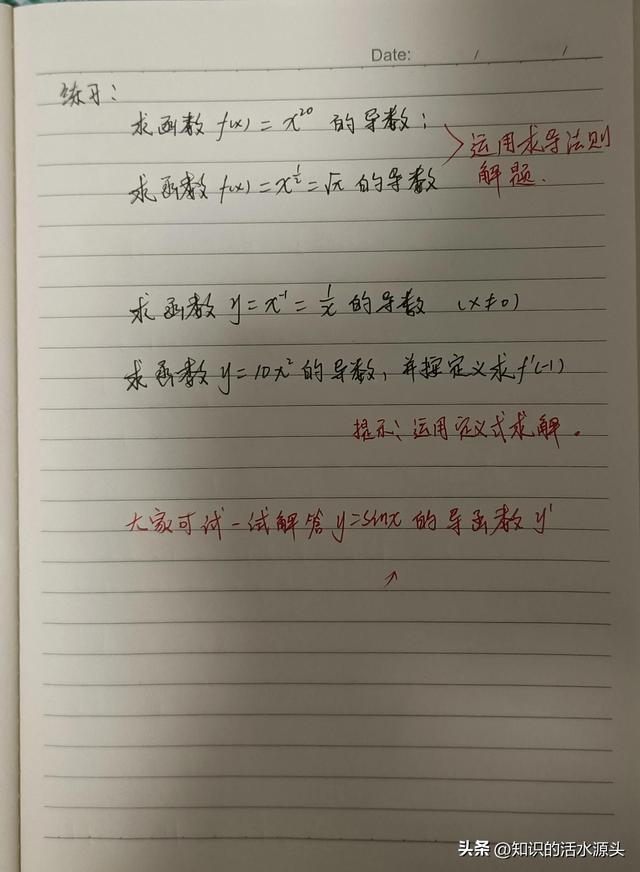 Date: / /
练习：
求函数 f(x) = x²⁰ 的导数；
求函数 f(x) = x^{1/2} = √x 的导数
> 运用求导法则
解题.
求函数 y = x⁻¹ = 1/x 的导数 (x≠0)
求函数 y = 10x² 的导数, 并按定义求 f'(-1)
提示：运用定义式求解。
大家可试一试解答 y=sinx 的导函数 y'
头条 @知识的活水源头